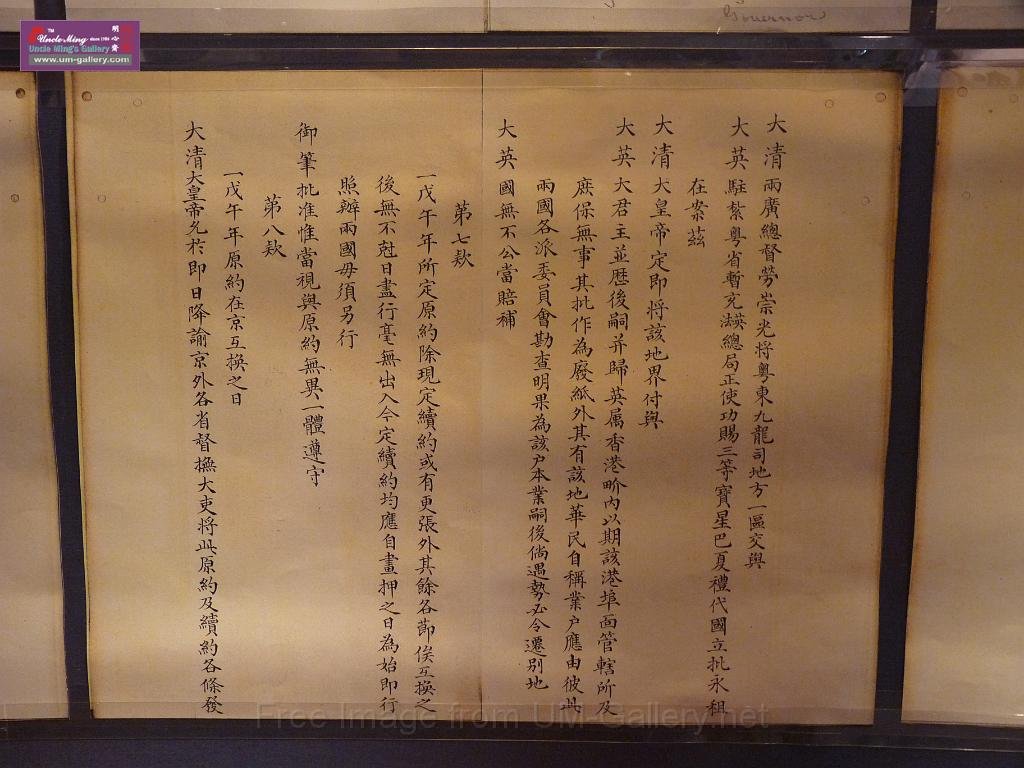 Governor
大清兩廣總督勞崇光將粵東九龍司地方一區交與
大英駐紮粵省暫充英法總局正使功賜三等寶星巴夏禮代國立批永租
在案茲
大清大皇帝定即將該地界付與
大英大君主並歷後嗣并歸英属香港界內以期該港埠面管轄所及
庶保無事其批作為廢紙外其有該地華民自稱業户應由彼此
兩國各派委員會勘查明果為該户本業嗣後倘遇勢必令遷別地
大英國無不公當賠補
第七款
一戊午年所定原約除現定續約或有更張外其餘各節俟互換之
後無不尅日盡行毫無出入今定續約均應自畫押之日為始即行
照辦兩國毋須另行
御筆批准惟當視與原約無異一體遵守
第八款
一戊午年原約在京互換之日
大清大皇帝允於即日降諭京外各省督撫大吏將此原約及續約各條發
TM
Uncle Ming since 1986
Uncle Ming's Gallery
www.um-gallery.com
明心齋
Free Image from UM-Gallery.net